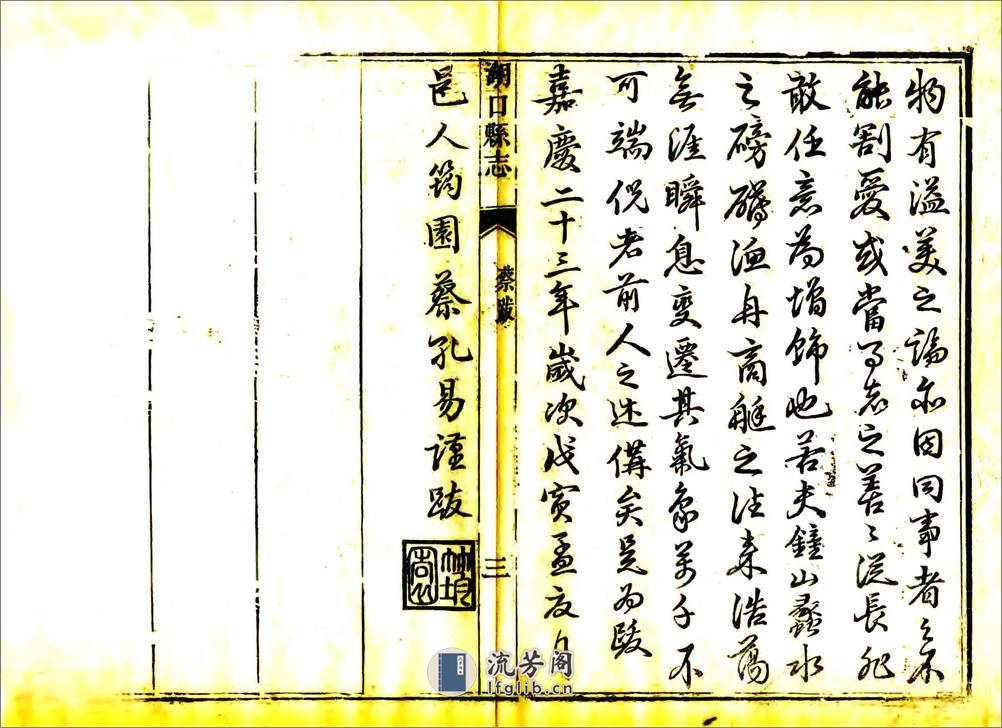 物有溢美之論亦因同事者之不
能割愛或當事者之善善從長非
敢任意為增飾也若夫鐘山蠡水
之磅礴漁舟商艇之往來浩蕩
無涯瞬息變遷其氣象萬千不
可端倪者前人之述備矣是為跋
嘉慶二十三年歲次戊寅孟夏月
湖口縣志
蔡跋
三
邑人筠園蔡孔易謹跋
流芳阁
lfglib.cn